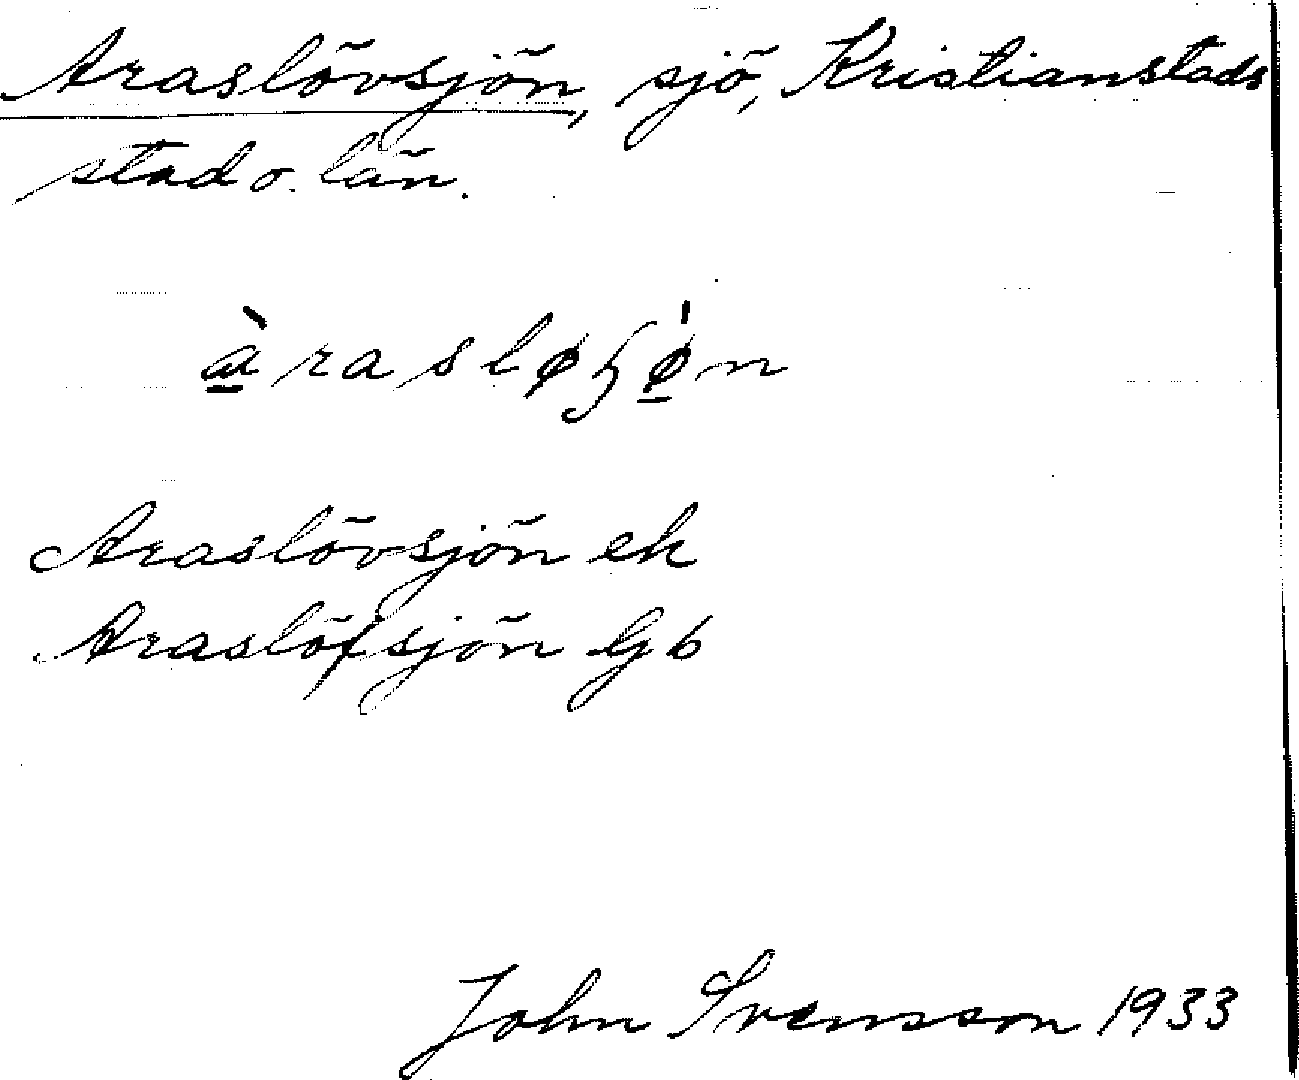 Araslövsjön, sjö, Kristianstads
stad o. län.
à̱rasløɧø̱̍n
Araslövsjön ek
Araslöfsjön Gb
John Svensson 1933